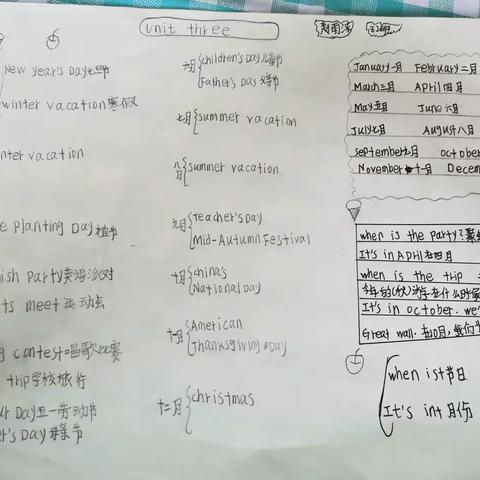 unit three
New year's Day元旦节
winter vacation寒假
nter vacation
e planting Day植节
ish Party英语派对
ts meet运动会
contest唱歌比赛
trip学校旅行
ur Day五一劳动节
er's Day母亲节
六月 children's Day儿童节
Father's Day父亲节
七月 summer vacation
八月 summer vacation
九月 Teacher's Day
Mid-Autumn Festival
十月 china's
National Day
十一月 American
Thanksgiving Day
十二月 christmas
January一月 February二月
March三月 April四月
May五月 June六月
July七月 August八月
september九月 october
November十一月 Decem
when is the party?
It's in April在四月
when is the trip
It's in october. we'
Great wall.
when is+节日
It's in+月份